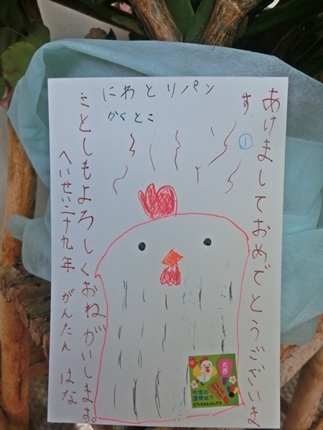 あけましておめでとうございま
す
①
にわとりパン
かくとこ
ことしもよろしくおねがいします。
へいせい二十九年 がんたん はな